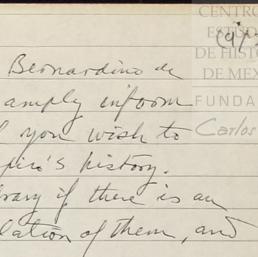 CENTRO
ESTUD
DE HISTO
DE MEX
FUNDA
Carlos
(9)
Bernardino de
amply inform
you wish to
piró's history.
brary if there is an
lation of them, and